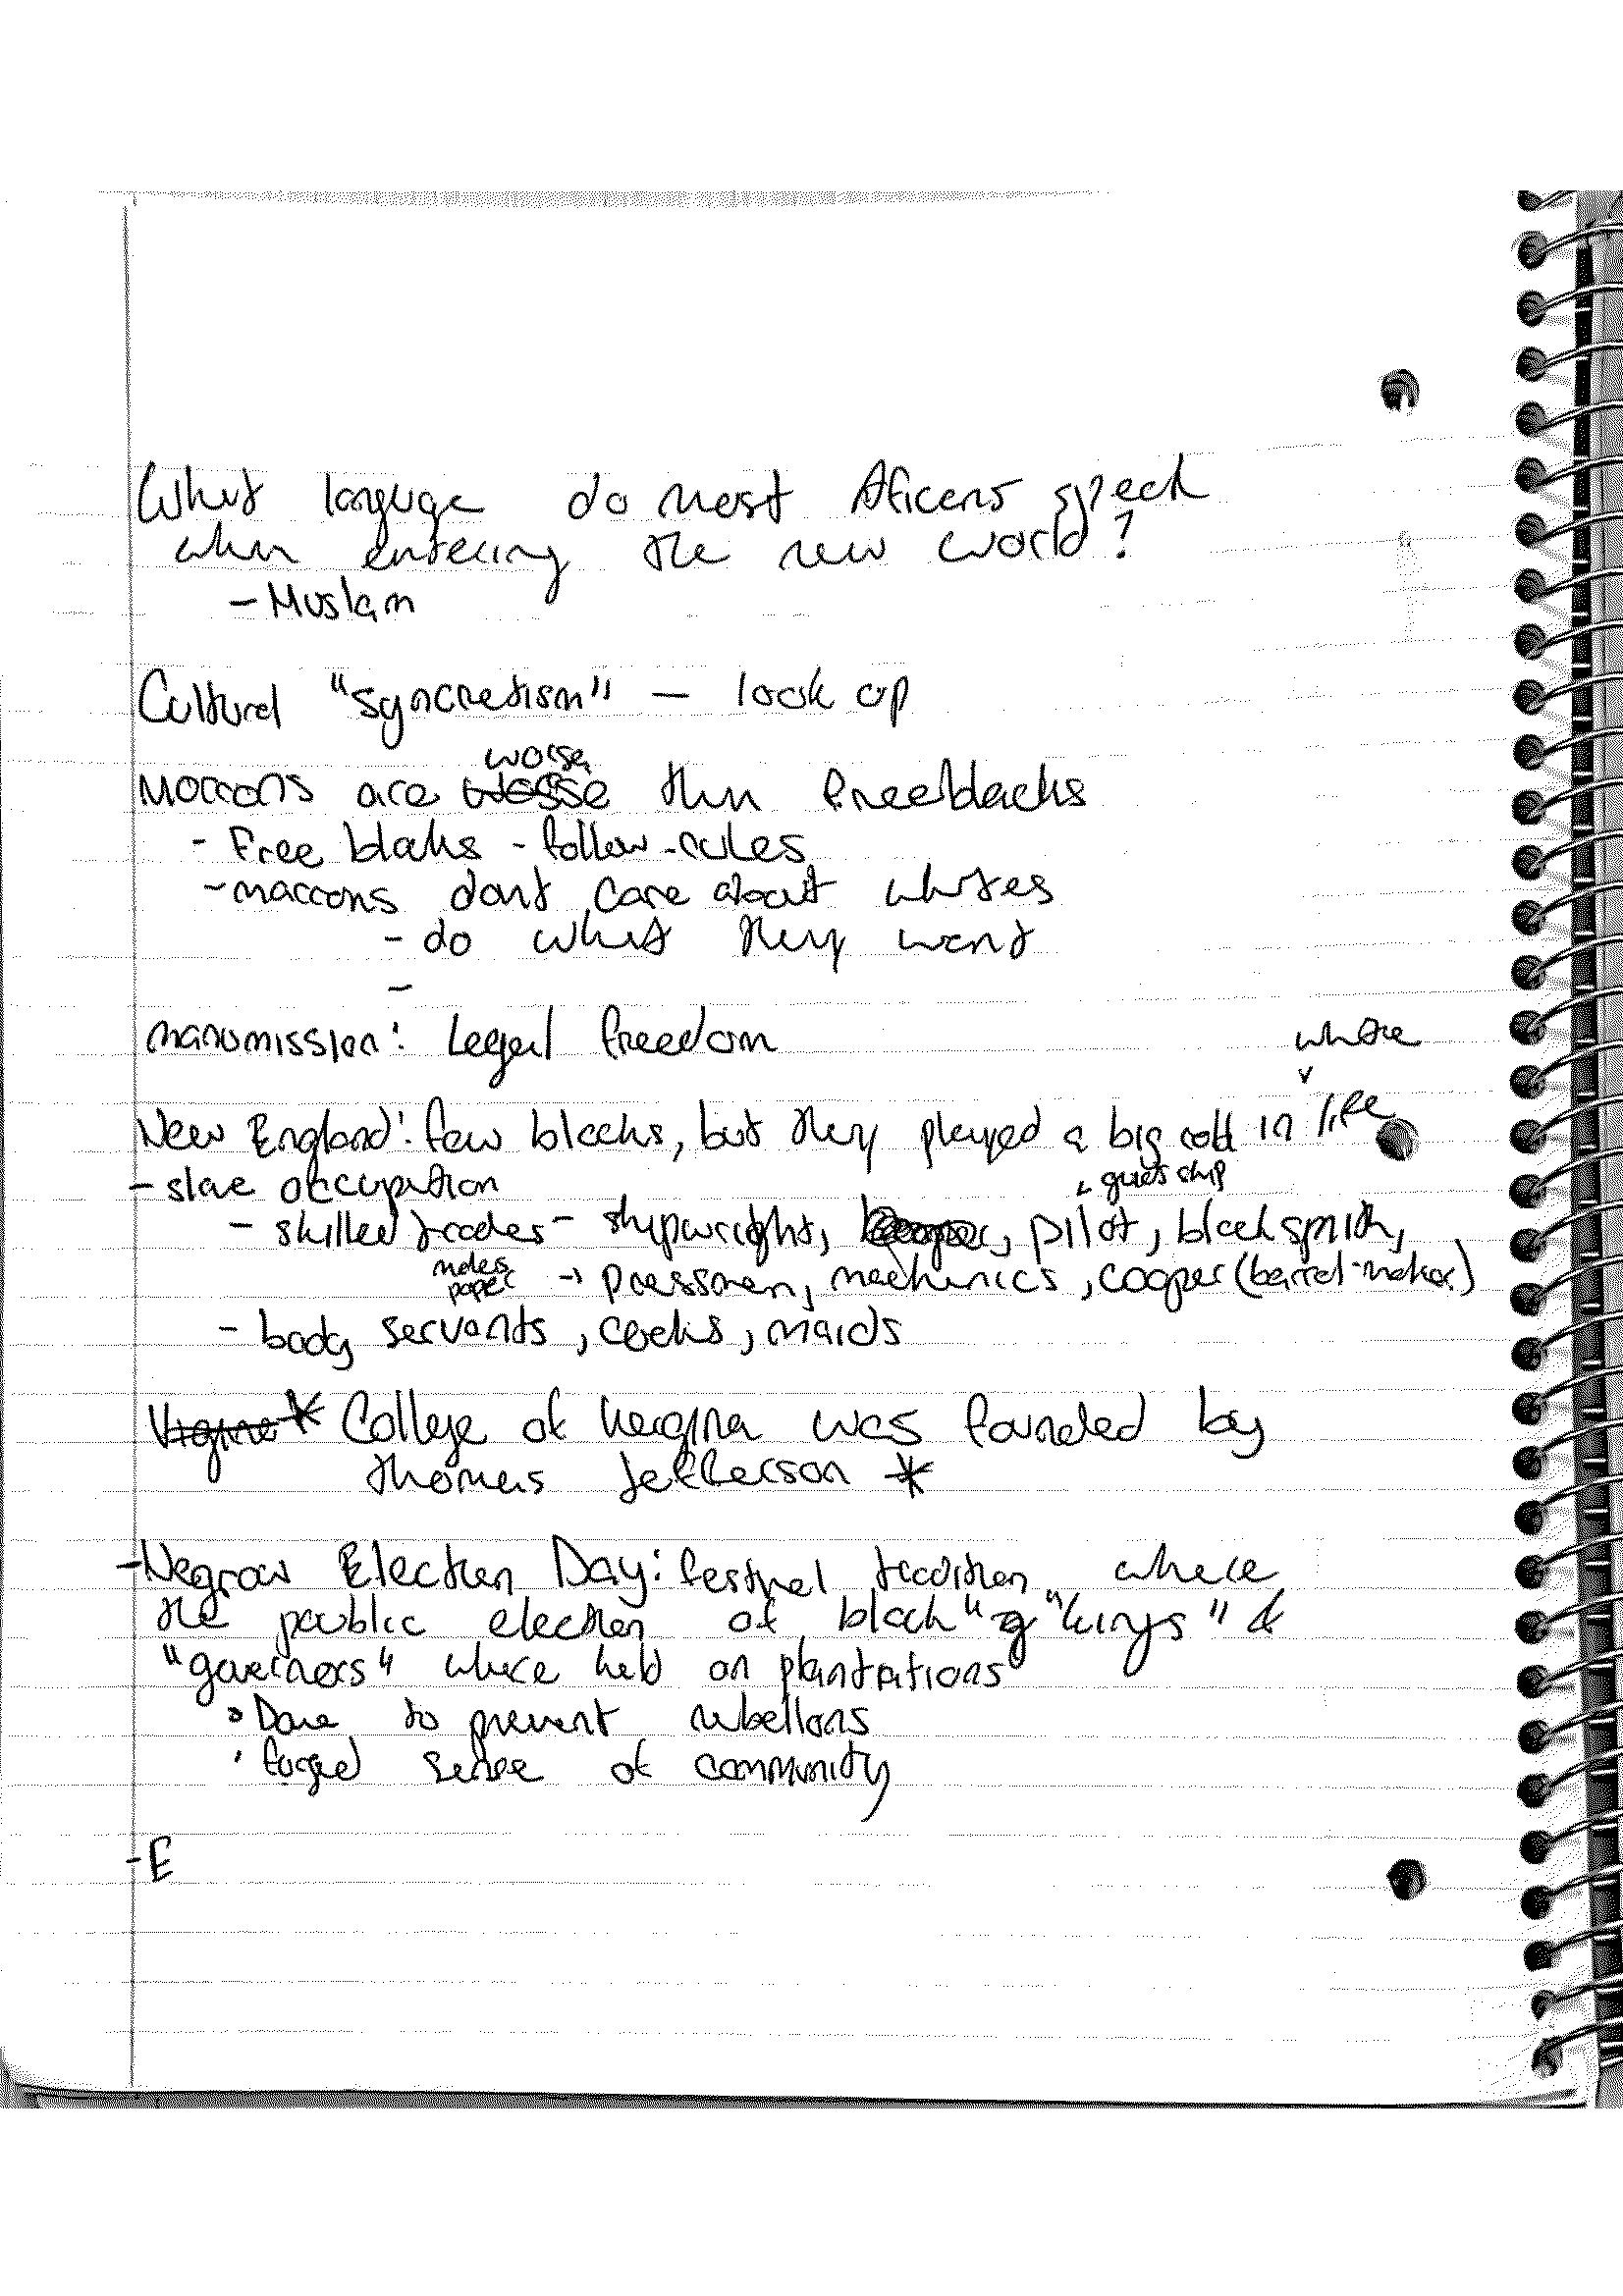 What languge do most Aficans speak
when entering the new world?
- Muslam
Cultural "syncretism" - look up
worse
Moroons are than free blacks
- Free blaks - follow rules
- maroons dont care about whites
- do what they want
-
manumission: Legal freedom
white
New England: few blacks, but they played a big roll in life
- slave occupation
guies ship
- skilled trades - shipwright, pilot, blacksmith,
makes
paper → pressmen, mechanics, cooper (barrel-maker)
- body servants, cooks, maids
* College of was founded by
Thomas Jefferson *
- Negrow Election Day: festivel tradition where
the public election of black " "kings" &
"governers" where held on plantations
• Done to prevent rebellions
• forged sense of community
- E